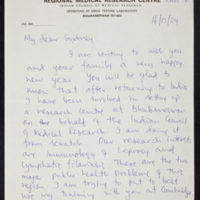 REGIONAL MEDICAL RESEARCH CENTRE
INDIAN COUNCIL OF MEDICAL RESEARCH
OPERATING AT DRUG TESTING LABORATORY
BHUBANESWAR-751
My dear Sydney
I am writing to wish you
and your family a very happy
new year. You will be glad to
know that after returning to India
I have been involved in setting up
a research Centre at Bhubaneswar
on behalf of the Indian Council
of Medical Research. I am doing it
from scratch. Our research interests
are immunology of Leprosy and
Lymphatic filariasis. These are the two
major public health problems of this
region. I am trying to put to best
use my training with you at Cambridge